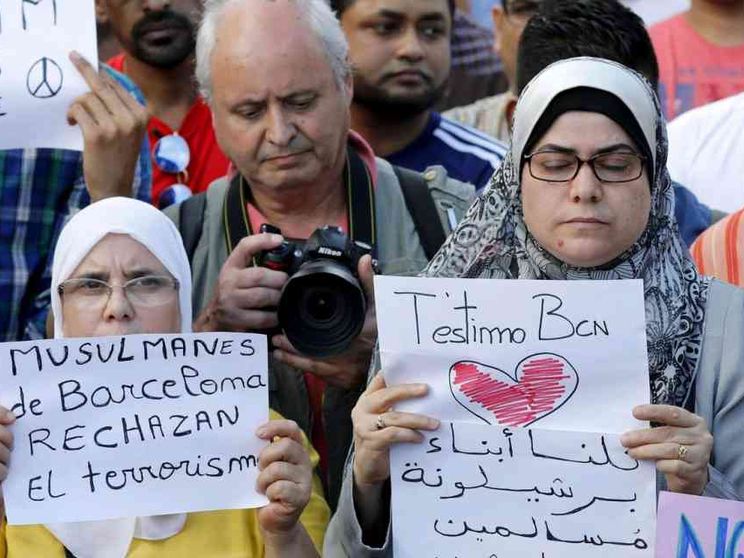 M
MUSULMANES
de BARCELONA
RECHAZAN
EL terrorism
Nikon
T'estimo Bcn
كلنا أبناء
برشيلونة
مسالمين
NO